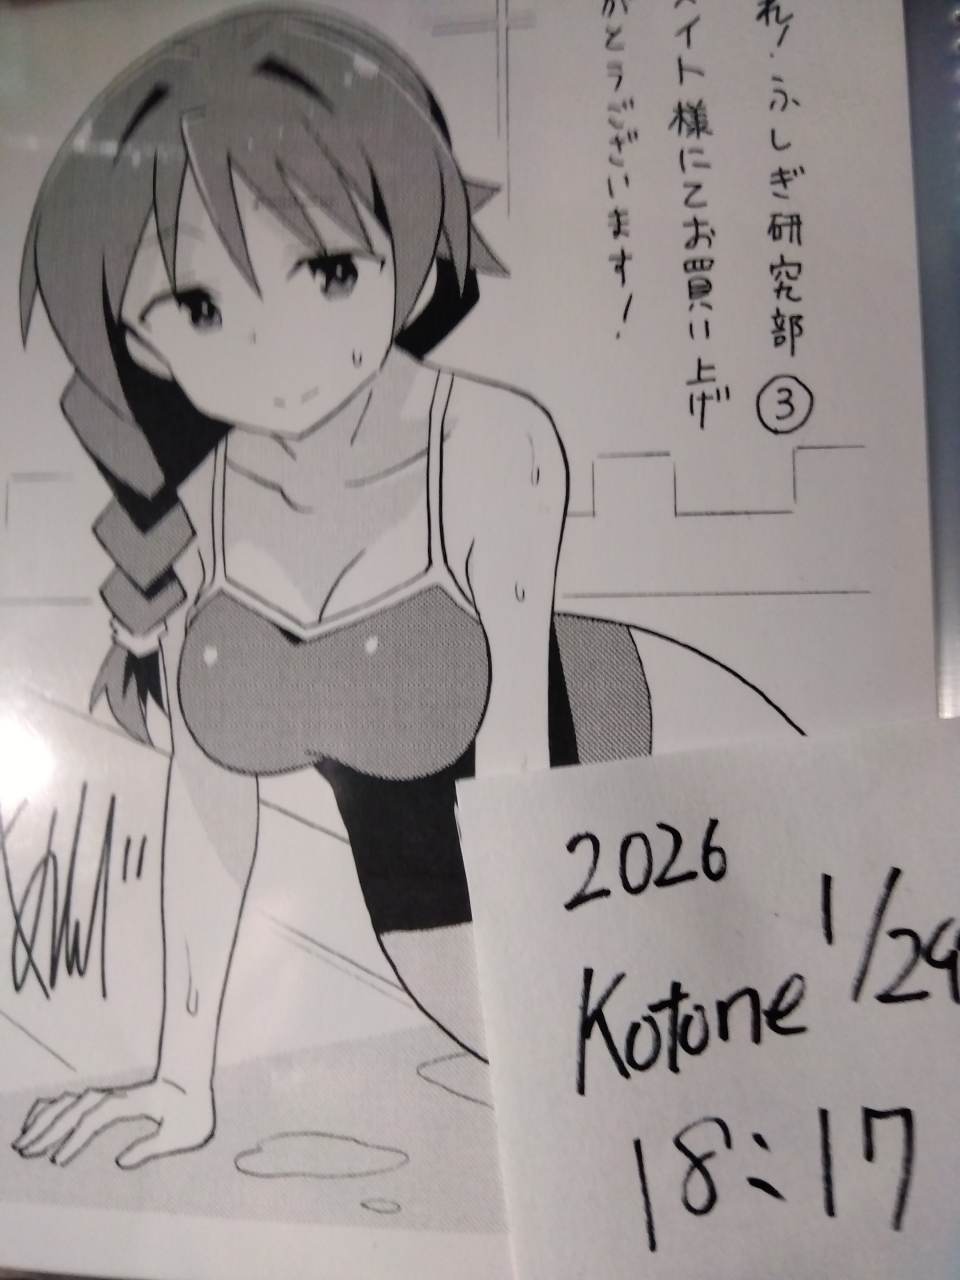 れ!ふしぎ研究部③
メイト様にてお買い上げ
がとうございます!
2026
1/29
Kotone
18:17